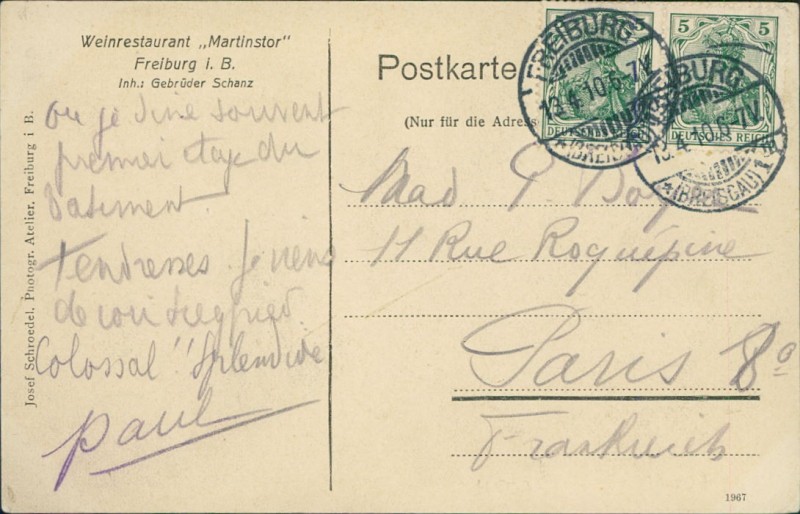 Weinrestaurant „Martinstor"
Freiburg i. B.
Inh.: Gebrüder Schanz
ou je dine souvent
premier etage du
batiment
Tendresses je viens
de voir Siegfried
Colossal !! Splendide
Paul
Josef Schroedel, Photogr. Atelier, Freiburg i B.
Postkarte
(Nur für die Adress
5
DEUTSCHES REICH
DEUTSCHES REICH
FREIBURG
13.4.10.6-7V.
(BREISGAU)
FREIBURG
13.4.10.6-7V.
*(BREISGAU)
Mad P.
11 Rue Roquépine
Paris 8e
Frankreich
1967